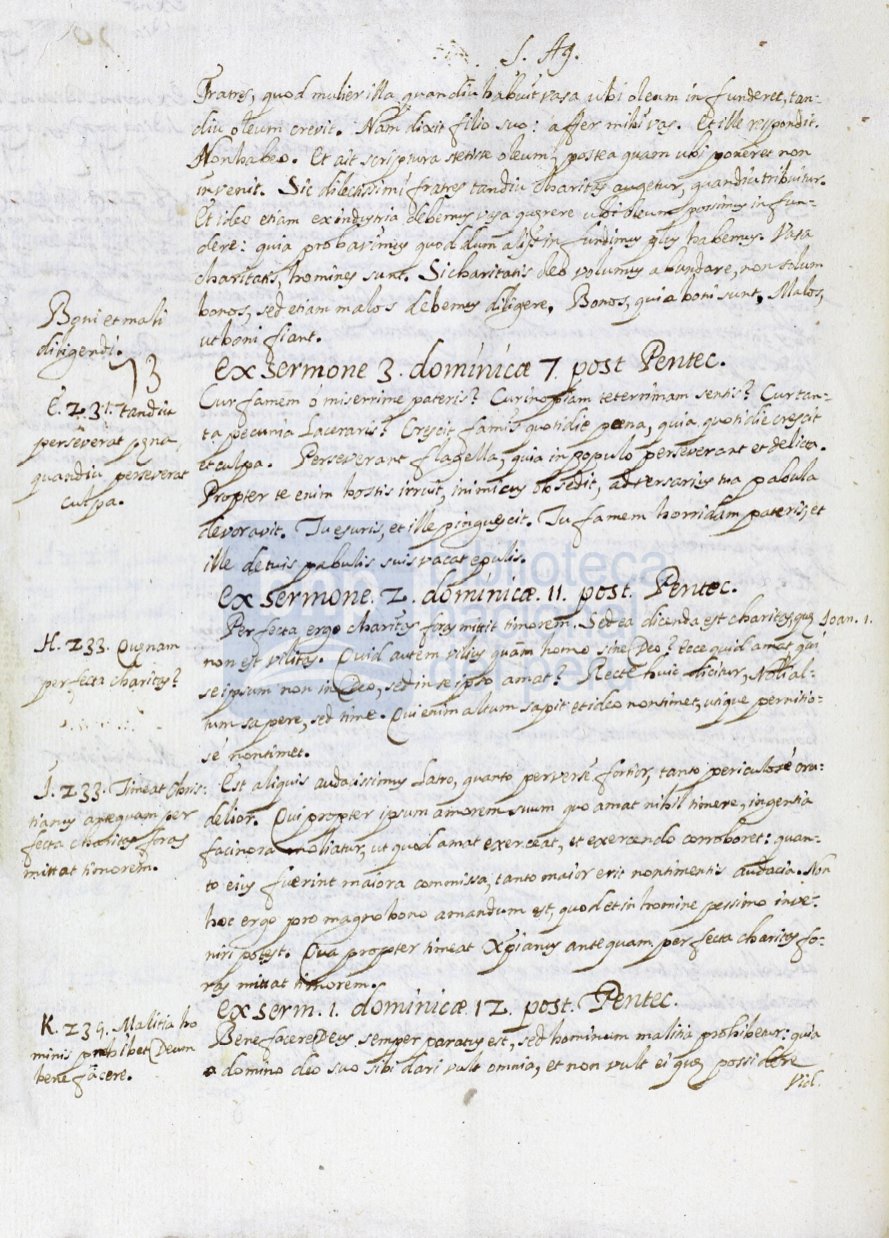 S. Ag.
Fratres, quod mulier illa quandiu habuit vasa ubi oleum infunderet, tan-
diu oleum crevit. Nam dixit filio suo: affer mihi vas. Et ille respondit.
Non habeo. Et ait scriptura stetisse oleum, postea quam ubi poneret non
invenit. Sic dilectissimi fratres tandiu charitas augetur, quandiu tribuitur.
Et ideo etiam ex industria debemus vasa quęrere ubi oleum possimus infun-
dere: quia probavimus quod dum alijs infundimus plus habemus. Vasa
charitatis, homines sunt. Si charitatis deo volumus abundare, non solum
bonos, sed etiam malos debemus diligere. Bonos, quia boni sunt, Malos,
ut boni fiant.
Boni et mali
diligendi.
13
Ex sermone 3. dominicæ 7. post Pentec.
E. 231. Tandiu
perseverat pęna
quandiu perseverat
culpa.
Cur famem ó miserrime pateris? Cur inopiam teterrimam sentis? Cur tan-
ta pecunia Laceraris? Crescit famis quotidie pœna, quia quotidie crescit
et culpa. Perseverant flagella, quia in populo perseverant et delicta.
Propter te enim hostis irruit, inimicus obsedit, adversarius tua pabula
devoravit. Tu esuris, et ille pinguescit. Tu famem horridam pateris, et
ille de tuis pabulis suis vacat epulis.
Ex sermone. 2. dominicæ. 11. post. Pentec.
H. 233. Quęnam
perfecta charitas?
Perfecta ergo charitas foras mittit timorem. Sed ea dicenda est charitas quę Ioan. 1.
non est vilitas. Quid autem vilius quàm homo sine Deo? Ecce quid amat qui
se ipsum non in Deo, sed in se ipso amat? Recte huic dicitur, Noli al-
tum sapere, sed time. Qui enim altum sapit et ideo non timet, utique pernitio-
se non timet.
J. 233. Timeat Chris-
tianus antequam per
fecta charitas foras
mittat timorem.
Est aliquis audacissimus Latro, quanto perversè fortior, tanto periculosè cru-
delior. Qui propter ipsum amorem suum quo amat nihil timere, ingentia
facinora moliatur, ut quod amat exerceat, et exercendo corroboret: quan-
to eius fuerint maiora commissa, tanto maior erit non timentis audacia. Non
hoc ergo pro magno bono amandum est, quod et in homine pessimo inve-
niri potest. Qua propter timeat Xp̃ianus antequam perfecta charitas fo-
ras mittat timorem.
Ex serm. 1. dominicæ 12. post. Pentec.
K. 239. Malitia ho
minis prohibet Deum
bene facere.
Bene facere Deus semper paratus est, sed hominum malitia prohibetur: quia
a domino deo suo sibi dari vult omnia, et non vult ei quę possidere
vid.
biblioteca
nacional
del perú